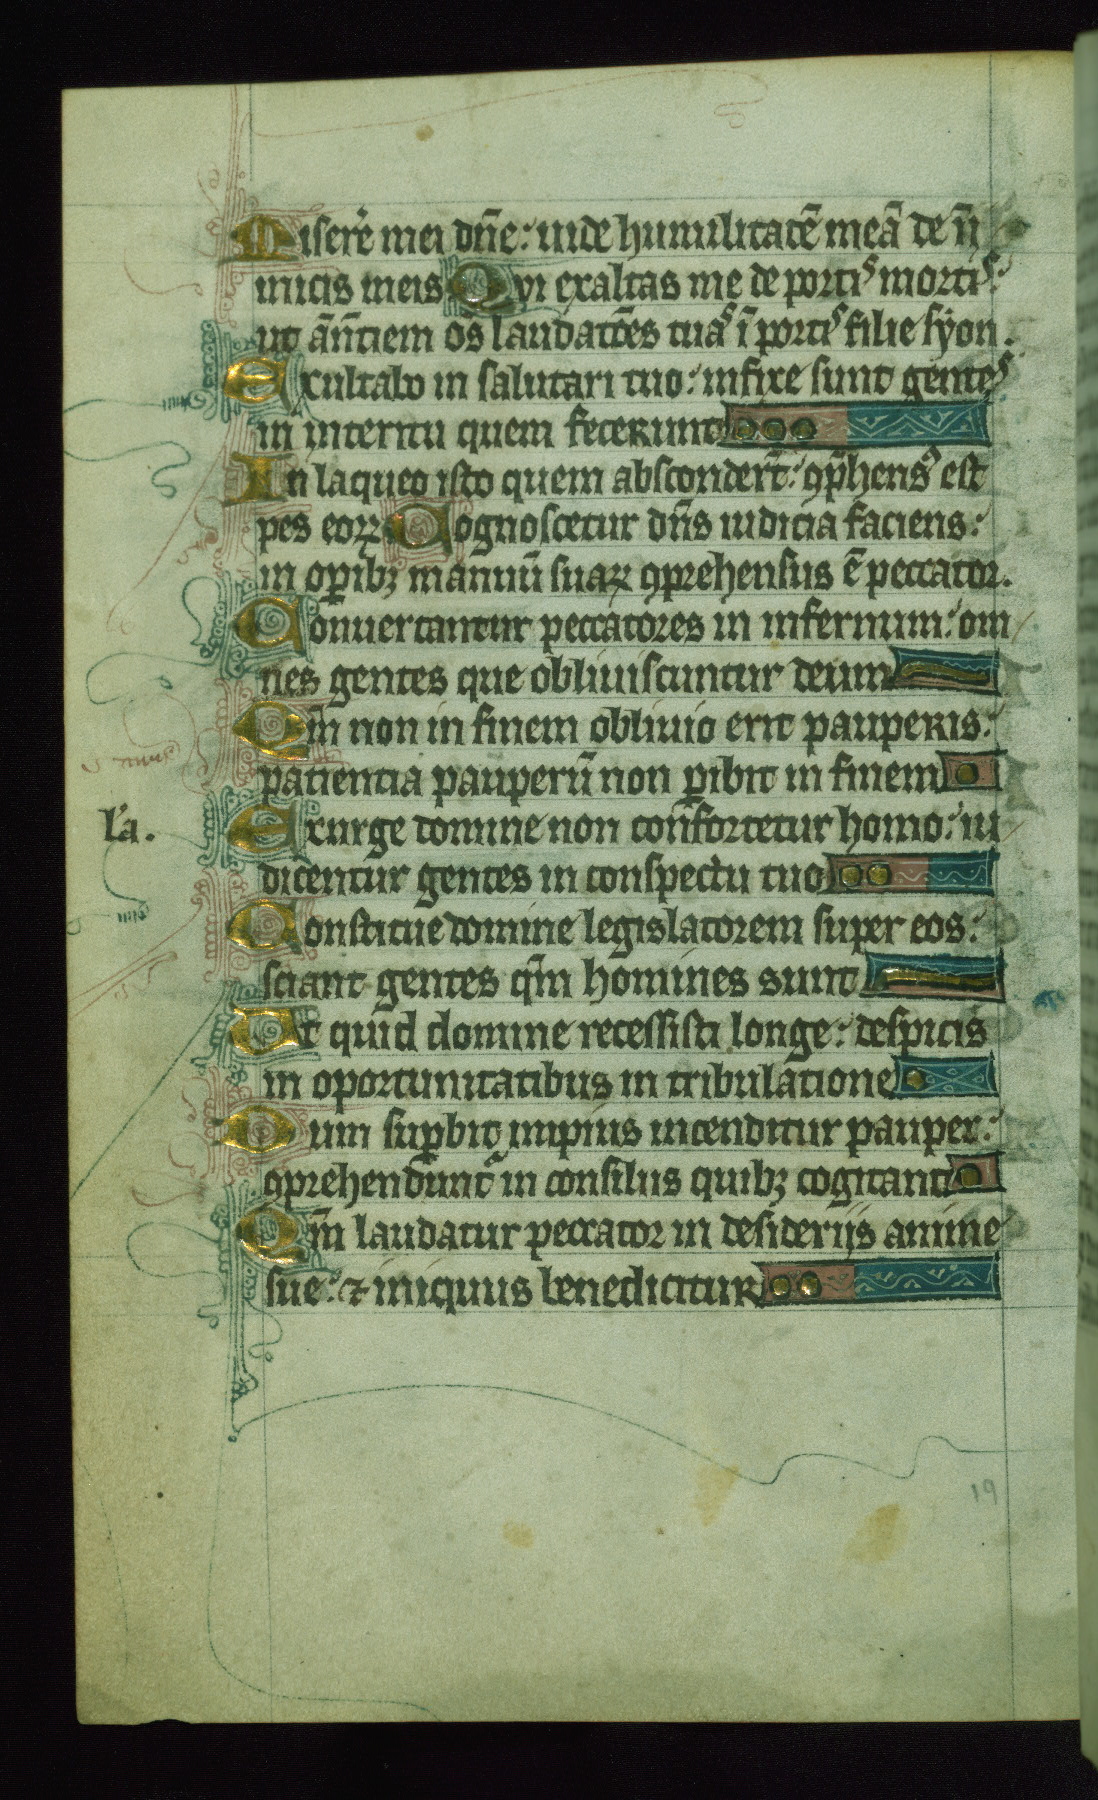 Miserẽ mei dñe: uide humilitatẽ meã de ĩi
micis meis Qvi exaltas me de portis mortis:
ut ãñtiem oẽs laudatões tuas ĩ portis filie syon.
Exultabo in salutari tuo: infixe sunt gentes
in interitu quem fecerunt
In laqueo isto quem abscondert̃: ꝯp̃hensꝰ est
pes eoꝝ Cognoscetur dñs iudicia faciens:
in oꝑibꝫ manuũ suaꝝ ꝯprehensus ẽ peccator.
Conuertantur peccatores in infernum: om
nes gentes que obliuiscuntur deum
Qm̃ non in finem obliuio erit pauperis:
patientia pauperũ non ꝑibit in finem
La.
Exurge domine non confortetur homo: iu
dicentur gentes in conspectu tuo
Constitue domine legislatorem super eos:
sciant gentes qm̃ homines sunt
Ut quid domine recessisti longe: despicis
in oportunitatibus in tribulatione
Dum suꝑbit impius incenditur pauper:
ꝯprehendunt᷑ in consiliis quibꝫ cogitant
Qm̃ laudatur peccator in desideriis anime
sue: ⁊ iniquus benedicitur
19